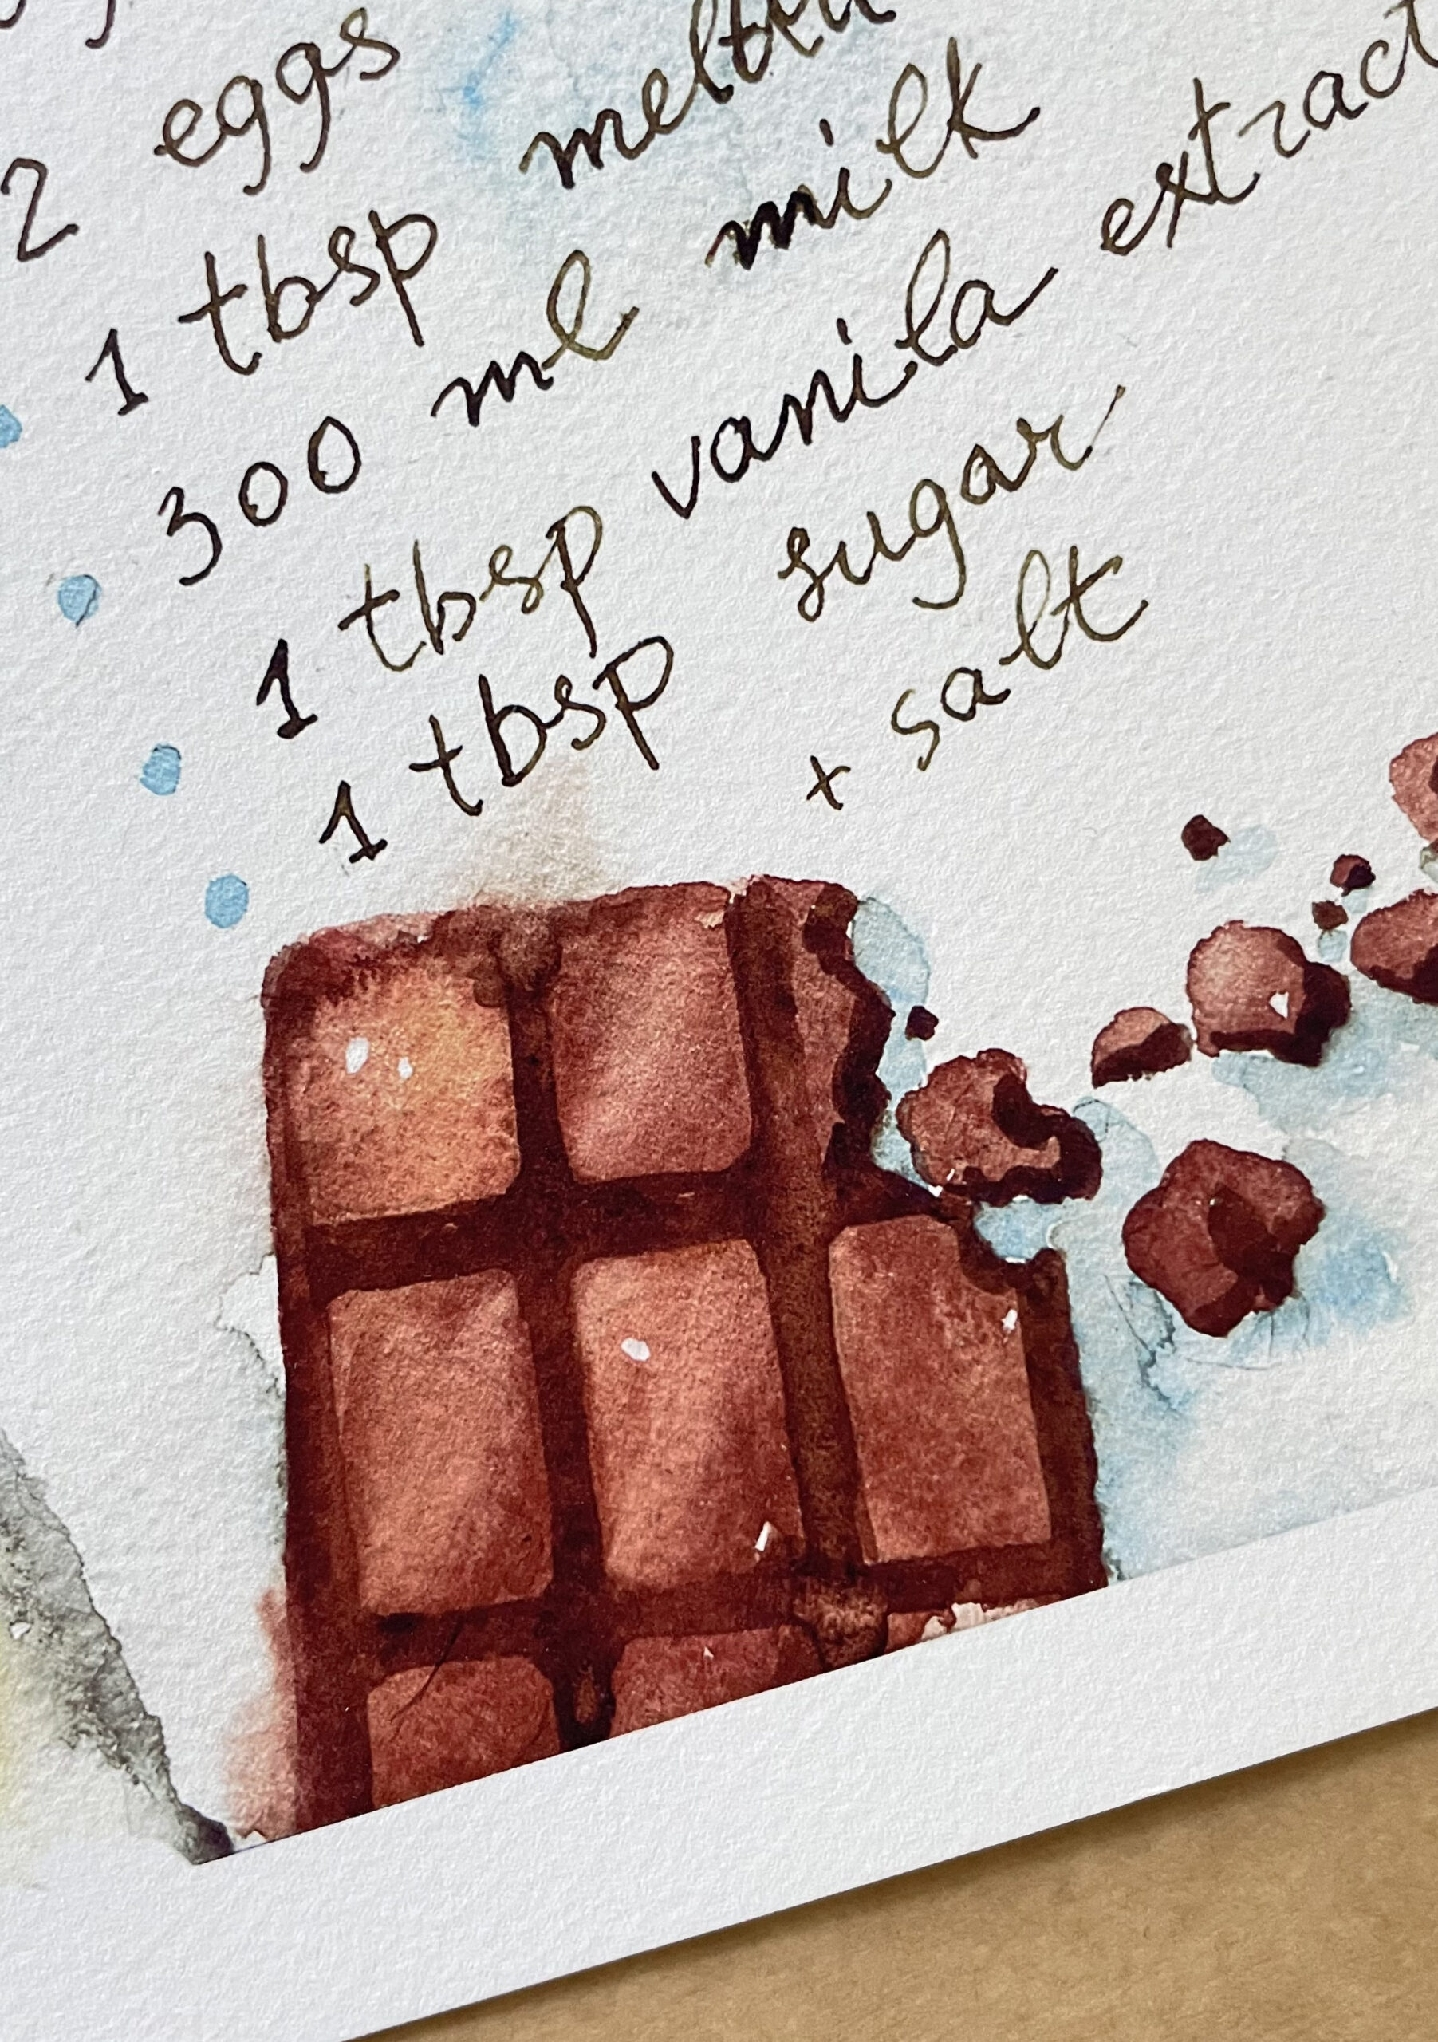 2 eggs
1 tbsp
300 ml milk
1 tbsp vanila extract
1 tbsp sugar
+ salt